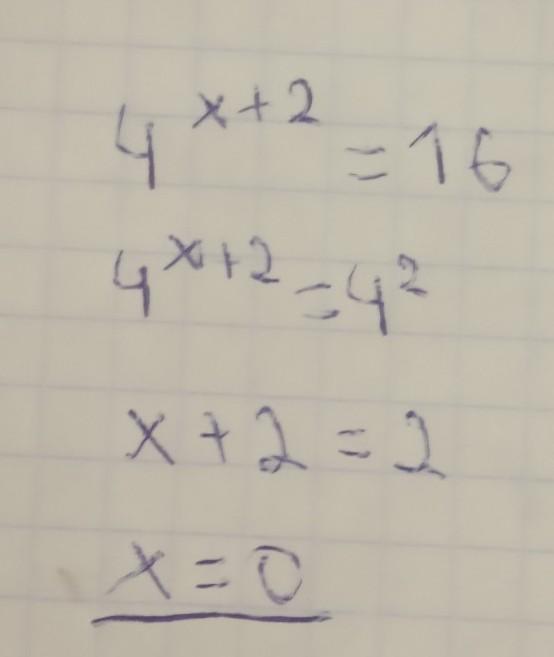 4^{x+2} = 16
4^{x+2} = 4^2
x + 2 = 2
x = 0